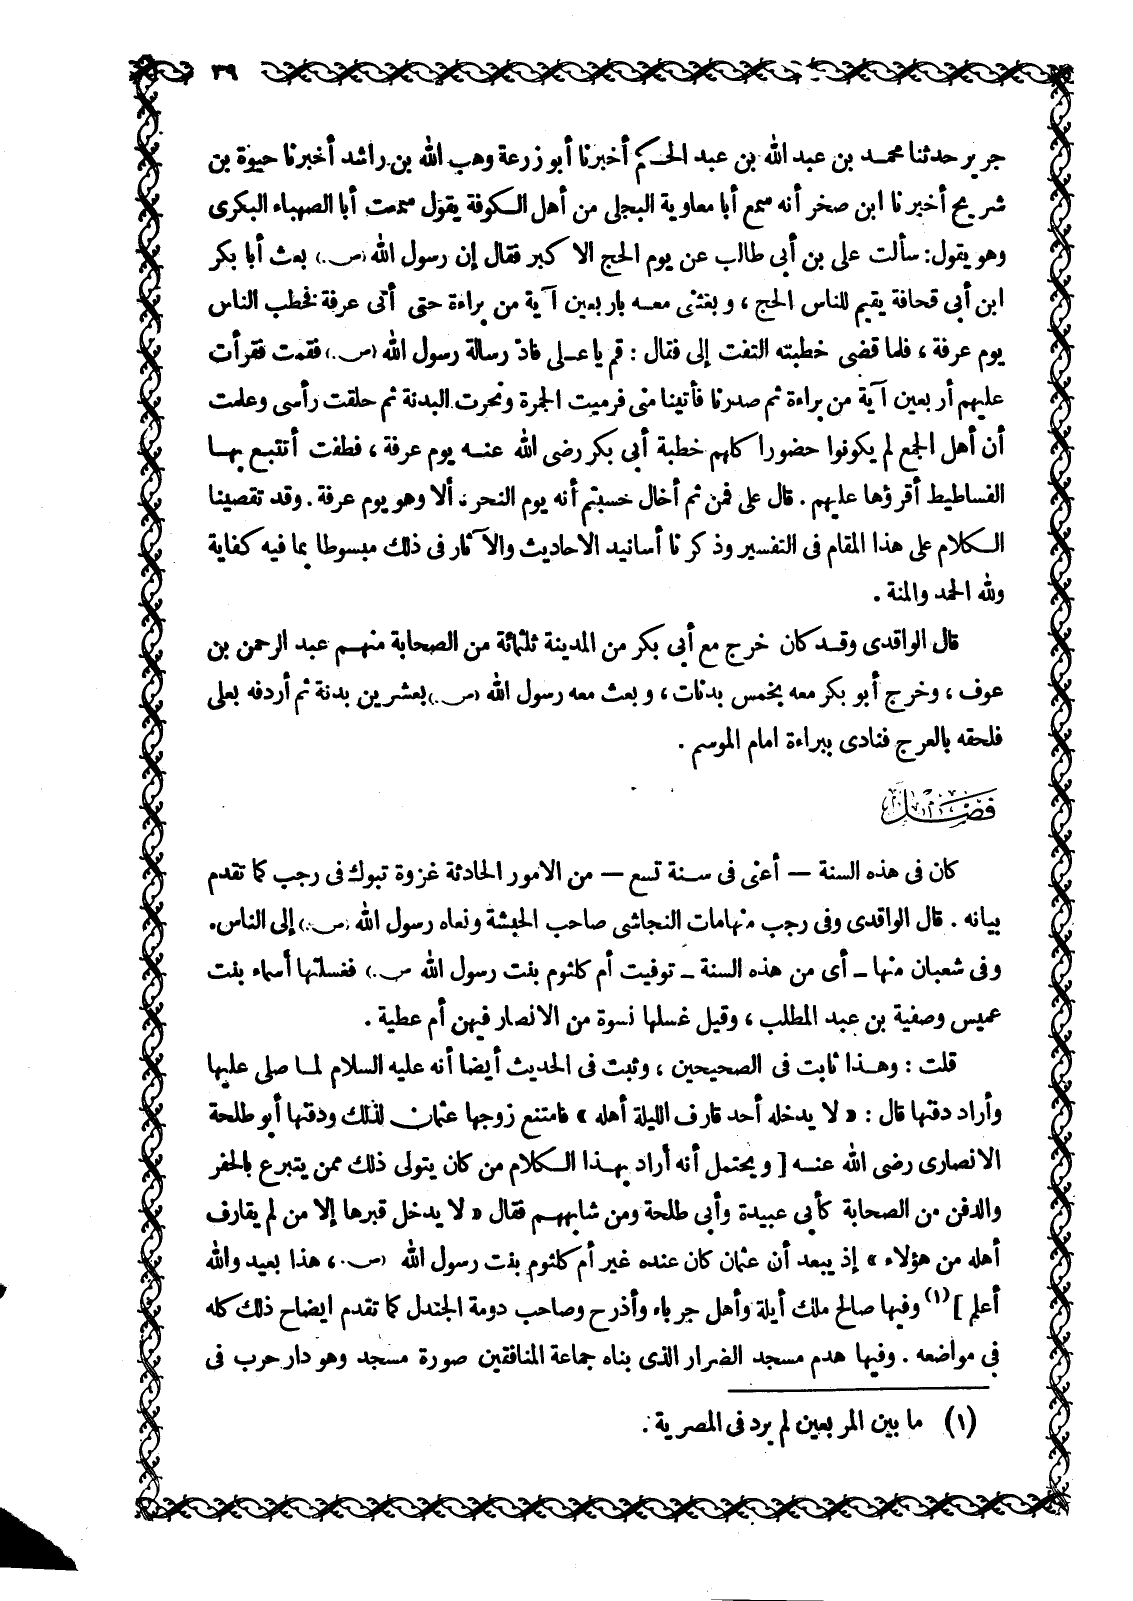 ٣٩
جرير حدثنا محمد بن عبد الله بن عبد الحكم أخبرنا أبو زرعة وهب الله بن راشد أخبرنا حيوة بن
شريح أخبرنا ابن صخر أنه سمع أبا معاوية البجلى من أهل الكوفة يقول سمعت أبا الصهباء البكرى
وهو يقول: سألت على بن أبى طالب عن يوم الحج الاكبر فقال إن رسول الله (ص.) بعث أبا بكر
ابن أبى قحافة يقيم للناس الحج ، وبعثنى معه باربعين آية من براءة حتى أتى عرفة فخطب الناس
يوم عرفة ، فلما قضى خطبته التفت إلى فقال : قم يا على فاد رسالة رسول الله (ص.) فقمت فقرأت
عليهم أربعين آية من براءة ثم صدرنا فأتينا منى فرميت الجمرة ونحرت البدنة ثم حلقت رأسى وعلمت
أن أهل الجمع لم يكونوا حضورا كلهم خطبة أبى بكر رضى الله عنه يوم عرفة ، فطفت أتتبع بها
الفساطيط أقرؤها عليهم . قال على فمن ثم أخال حسبتم أنه يوم النحر ، ألا وهو يوم عرفة . وقد تقصينا
الكلام على هذا المقام فى التفسير وذكرنا أسانيد الاحاديث والآثار فى ذلك مبسوطا بما فيه كفاية
ولله الحمد والمنة .
قال الواقدى وقد كان خرج مع أبى بكر من المدينة ثلثمائة من الصحابة منهم عبد الرحمن بن
عوف ، وخرج أبو بكر معه بخمس بدنات ، وبعث معه رسول الله (ص.) بعشرين بدنة ثم أردفه بعلى
فلحقه بالعرج فنادى ببراءة امام الموسم .
فصل
كان فى هذه السنة — أعنى فى سنة تسع — من الامور الحادثة غزوة تبوك فى رجب كما تقدم
بيانه . قال الواقدى وفى رجب منها مات النجاشى صاحب الحبشة ونعاه رسول الله (ص.) إلى الناس.
وفى شعبان منها ـ أى من هذه السنة ـ توفيت أم كلثوم بنت رسول الله ص.) فغسلتها أسماء بنت
عميس وصفية بن عبد المطلب ، وقيل غسلها نسوة من الانصار فيهن أم عطية .
قلت : وهذا ثابت فى الصحيحين ، وثبت فى الحديث أيضا أنه عليه السلام لما صلى عليها
وأراد دفنها قال : « لا يدخله أحد قارف الليلة أهله » فامتنع زوجها عثمان لذلك ودفنها أبو طلحة
الانصارى رضى الله عنه [ ويحتمل أنه أراد بهذا الكلام من كان يتولى ذلك ممن يتبرع بالحفر
والدفن من الصحابة كأبى عبيدة وأبى طلحة ومن شابههم فقال « لا يدخل قبرها إلا من لم يقارف
أهله من هؤلاء » إذ يبعد أن عثمان كان عنده غير أم كلثوم بنت رسول الله (ص.، هذا بعيد والله
أعلم ](١) وفيها صالح ملك أيلة وأهل جرباء وأذرح وصاحب دومة الجندل كما تقدم ايضاح ذلك كله
فى مواضعه . وفيها هدم مسجد الضرار الذى بناه جماعة المنافقين صورة مسجد وهو دار حرب فى
(١) ما بين المربعين لم يرد فى المصرية .